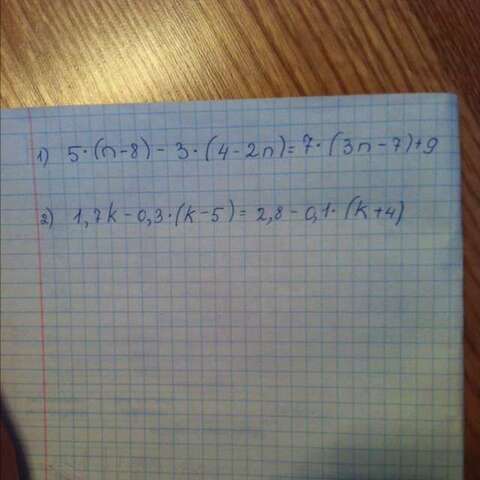 1) 5·(n-8)-3·(4-2n)=7·(3n-7)+9
2) 1,7k-0,3·(k-5)=2,8-0,1·(k+4)